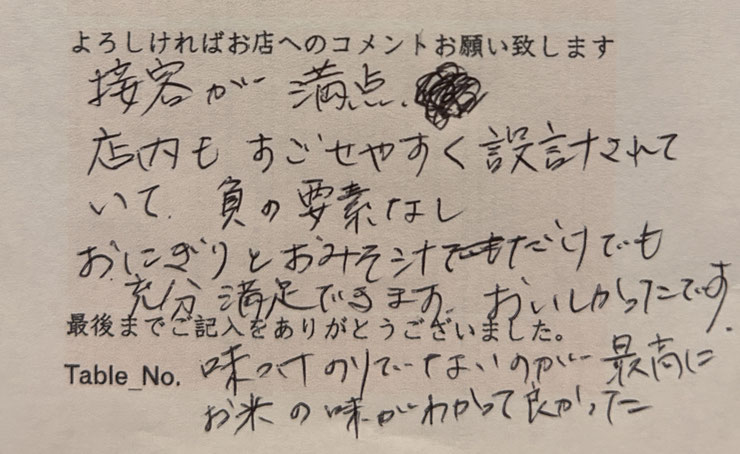 よろしければお店へのコメントお願い致します
接客が満点.
店内もすごせやすく設計されて
いて.負の要素なし
おにぎりとおみそ汁でもだけでも
充分満足できます.おいしかったです.
最後までご記入をありがとうございました。
Table_No. 味つけのりでないのが最高に
お米の味がわかって良かった